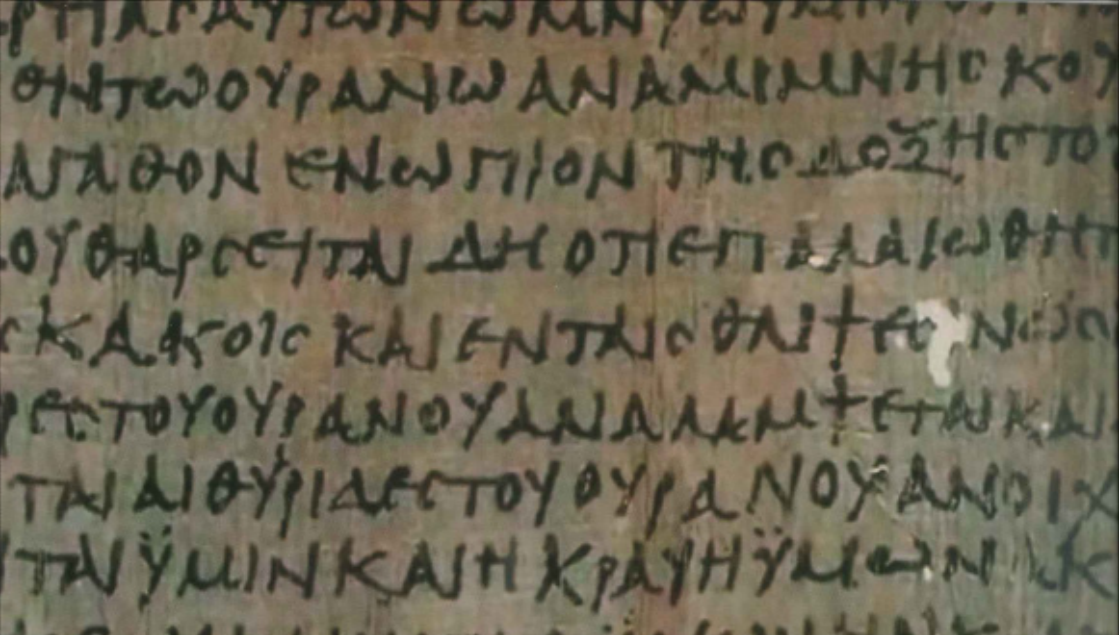 ΤΩΟΥΡΑΝΩ ΑΝΑΜΙΜΝΗϹΚΟΥ
ΑΓΑΘΟΝ ΕΝΩΠΙΟΝ ΤΗϹΔΟΞΗϹΤΟ
ΟΥΘΑΡϹΕΙΤΑΙ ΔΗ ΟΤΙΕΠΑΛΑΙΩΘΗΤ
ϹΚΑΚΟΙϹ ΚΑΙΕΝΤΑΙϹΘΛΙΨΕϹΙΝΩϹ
ΡΕϹΤΟΥΟΥΡΑΝΟΥΑΝΑΛΑΜΨΕΤΑΙΚΑΙ
ΤΑΙΑΙΘΥΡΙΔΕϹΤΟΥΟΥΡΑΝΟΥΑΝΟΙΧ
ΤΑΙΫΜΙΝΚΑΙΗ ΚΡΑΥΗΫΜΩΝ Κ